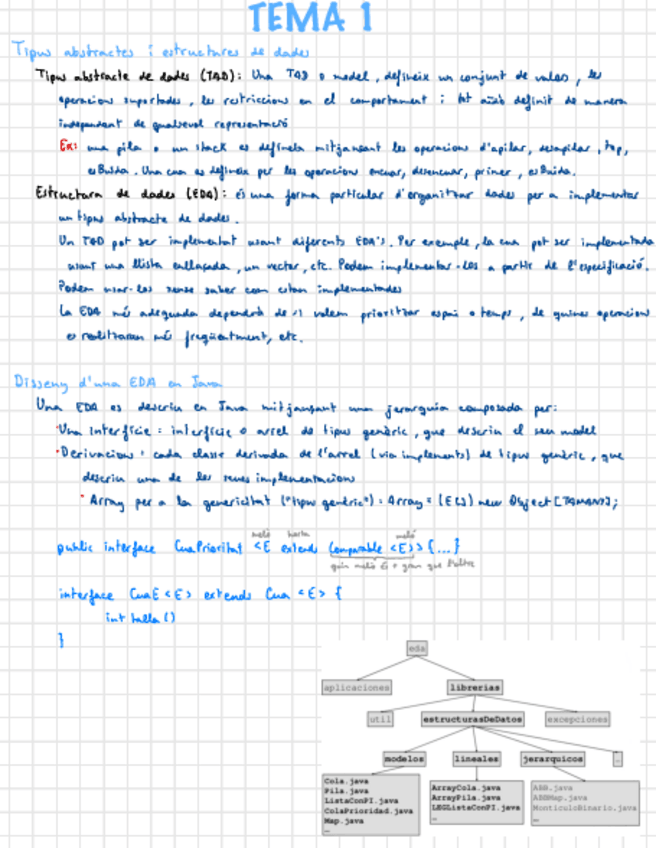 TEMA 1
Tipus abstractes i estructures de dades
Tipus abstracte de dades (TAD): Una TAD o model, defineix un conjunt de valors, les
operacions suportades, les restriccions en el comportament i tot això definit de manera
independent de qualsevol representació
Ex: una pila o un stack es defineix mitjançant les operacions d'apilar, desapilar, top,
esBuida. Una cua es defineix per les operacions encuar, desencuar, primer, esBuida.
Estructura de dades (EDA): és una forma particular d'organitzar dades per a implementar
un tipus abstracte de dades.
Un TAD pot ser implementat usant diferents EDA's. Per exemple, la cua pot ser implementada
usant una llista enllaçada, un vector, etc. Podem implementar-les a partir de l'especificació.
Podem usar-les sense saber com estan implementades
La EDA més adequada dependrà de si volem prioritzar espai o temps, de quines operacions
es realitzaran més freqüentment, etc.
Disseny d'una EDA en Java
Una EDA es descriu en Java mitjançant una jerarquia composada per:
Una Interfície: interfície o arrel de tipus genèric, que descriu el seu model
Derivacions: cada classe derivada de l'arrel (via implements) de tipus genèric, que
descriu una de les seues implementacions
Array per a la genericitat ("tipus genèric"): Array = (E[]) new Object[TAMANY];
meló hasta meló
public interface CuaPrioritat <E extends Comparable <E>> {...}
quin meló és + gran que l'altre
interface CuaE <E> extends Cua <E> {
int talla ()
}
eda
aplicaciones librerias
util estructurasDeDatos excepciones
modelos lineales jerarquicos …
Cola.java
Pila.java
ListaConPI.java
ColaPrioridad.java
Map.java
…
ArrayCola.java
ArrayPila.java
LEGListaConPI.java
…
ABB.java
ABBMap.java
MonticuloBinario.java
…